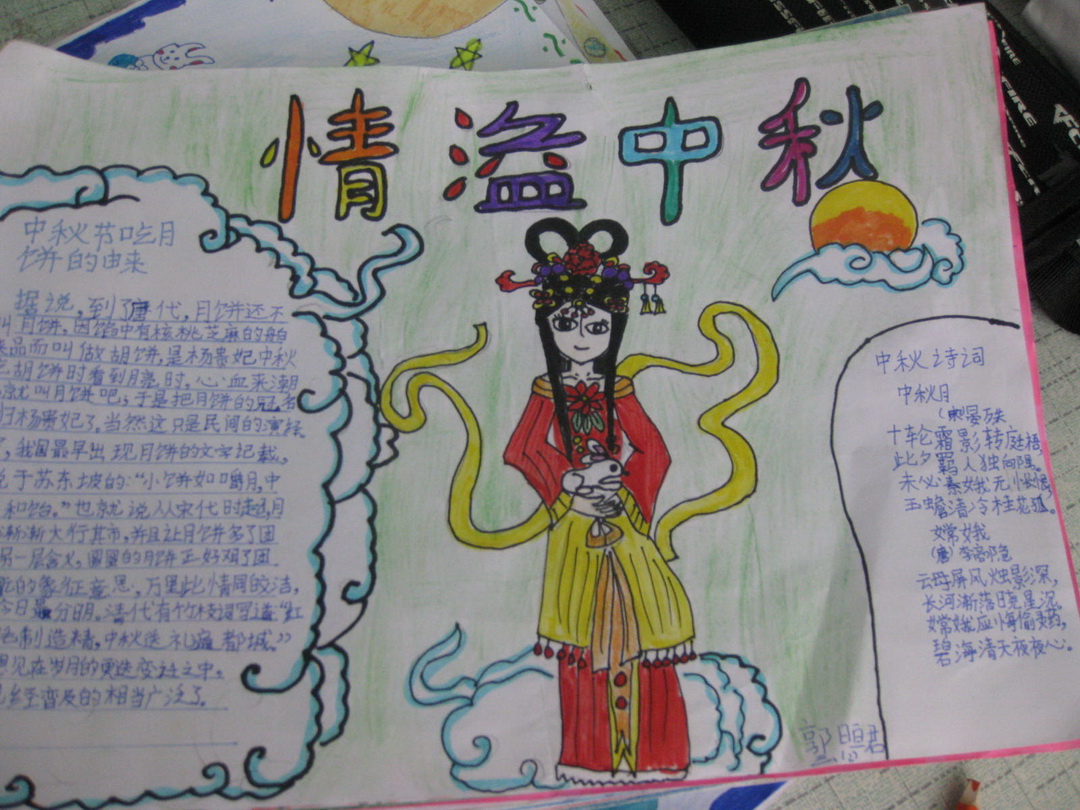 情溢中秋
中秋节吃月
饼的由来
据说,到了唐代,月饼还不
叫月饼,因馅中有核桃芝麻的
品而叫做胡饼,是杨贵妃中秋
胡饼时看到月亮时,心血来潮
就叫月饼吧,于是把月饼的冠名
归杨贵妃了,当然这只是民间的演绎
,我国最早出现月饼的文字记载,
于苏东坡的:“小饼如嚼月,中
和饴。”也就说从宋代时起月
渐渐大行其市,并且让月饼多了团
另一层含义,圆圆的月饼正好对了团
的象征意思,万里此情同皎洁,
今日最分明。清代有竹枝词写道“红
色制造精,中秋送礼遍都城。”
见在岁月的更迭变迁之中,
普及的相当广泛了。
中秋诗词
中秋月
晏殊
十轮霜影转庭梧,
此夕羁人独向隅。
未必素娥无惆怅,
玉蟾清冷桂花孤。
嫦娥
(唐)李商隐
云母屏风烛影深,
长河渐落晓星沉,
嫦娥应悔偷灵药,
碧海清天夜夜心。
郭晅君